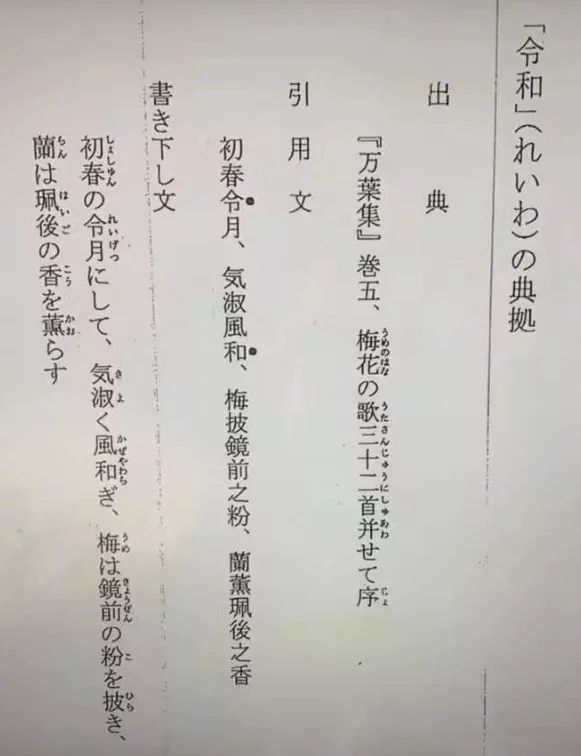 「令和」(れいわ)の典拠
出典
『万葉集』巻五、梅花の歌三十二首并せて序
うめのはな うたさんじゅうにしゅあわ じょ
引用文
初春令月、気淑風和、梅披鏡前之粉、蘭薫珮後之香
書き下し文
初春の令月にして、気淑く風和ぎ、梅は鏡前の粉を披き、
しょしゅん れいげつ きよ かぜやわら うめ きょうぜん こ ひら
蘭は珮後の香を薫らす
らん はいご こう かお